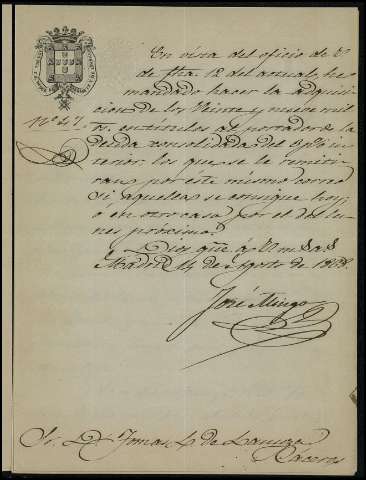 En vista del oficio de V.
de fha. 12 del actual, he
mandado hacer la adquisi-
cion de los Veinte y nueve mil
Nº 47.
en titulos al portador de la
Deuda consolidada del 3 p% in-
terior, los que se le remiti-
ran por este mismo correo
si aquellos se consigue hoy,
o en otro caso por el del lu-
nes próximo.
Dios gue á V. m. s. a. s.
Madrid 14 de Agosto de
José Mingo
Sr. D. Tomas L. de
Cáceres